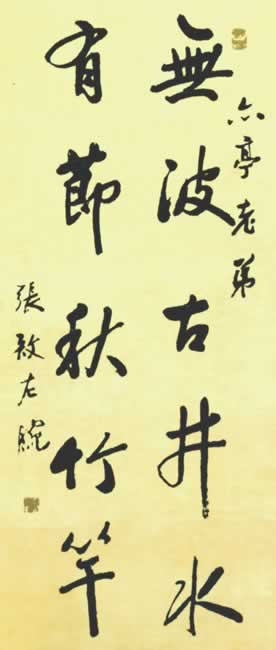 亭老弟
無波古井水
有節秋竹竿
張左腕